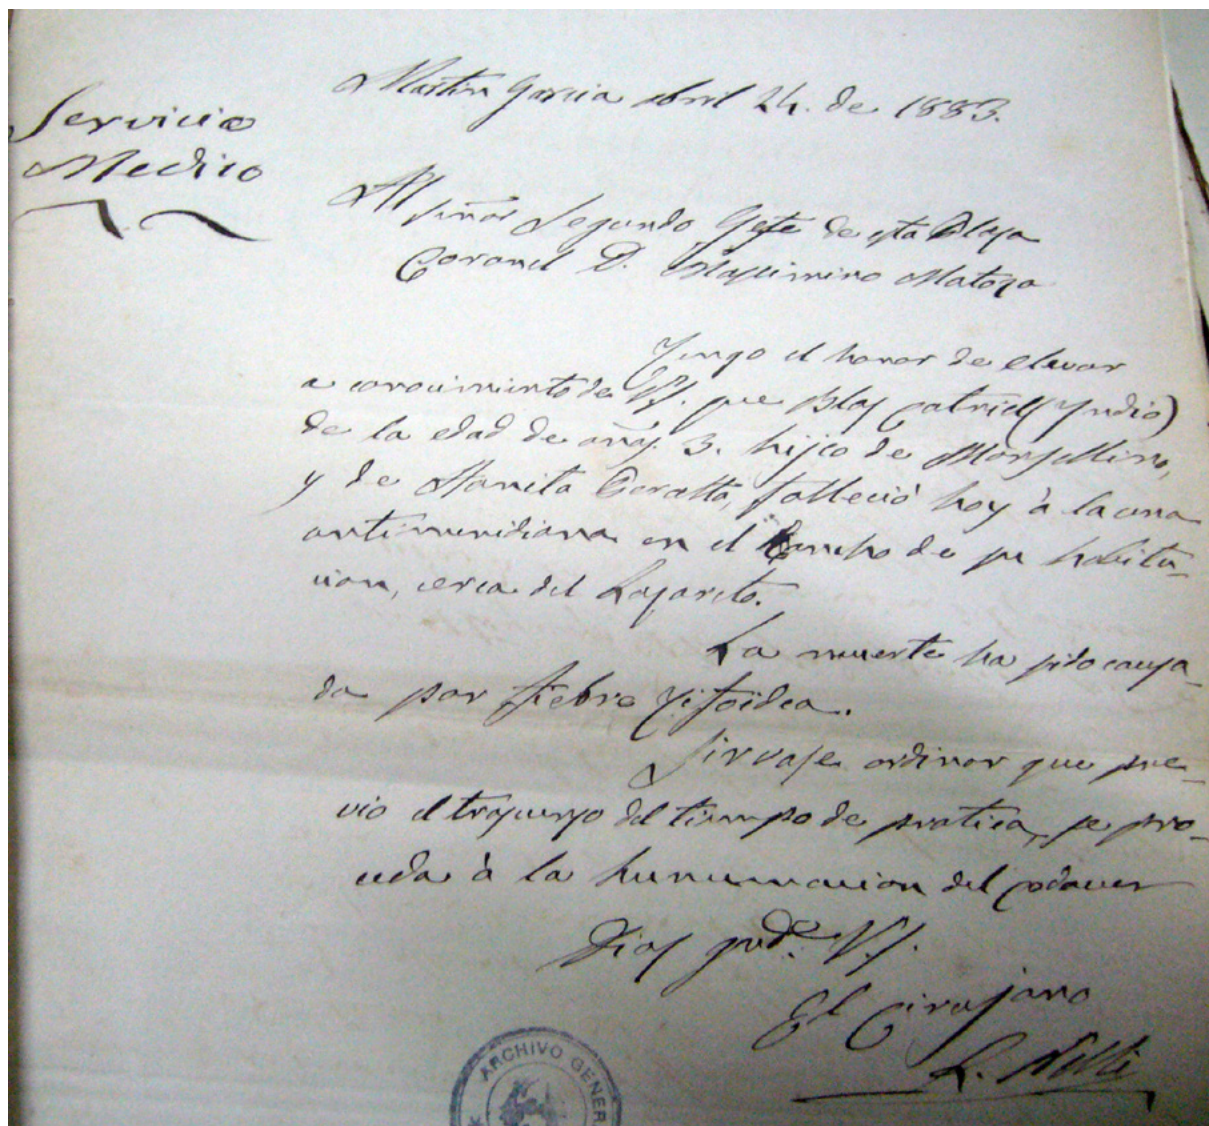 Servicio
Medico
Martin Garcia abril 24. de 1883.
Al señor Segundo Gefe de esta Plaza
Coronel D. Maximino Matoza
Tengo el honor de elevar
a conocimiento de V.S. que Blas Catriel (Yndio)
de la edad de años. 3. hijo de Marsellino,
y de Manita Peralta, falleció hoy à la una
antimeridiana en el Rancho de su habita-
cion, cerca del Lazareto.
La muerte ha sido causa-
da por fiebre Tifoidea.
Sirvase ordinar que pre-
vio el trascurso del tiempo de pratica, se pro-
ceda à la hunumacion del cadaver
Dios gude. V.S.
El Cirujano
ARCHIVO GENER